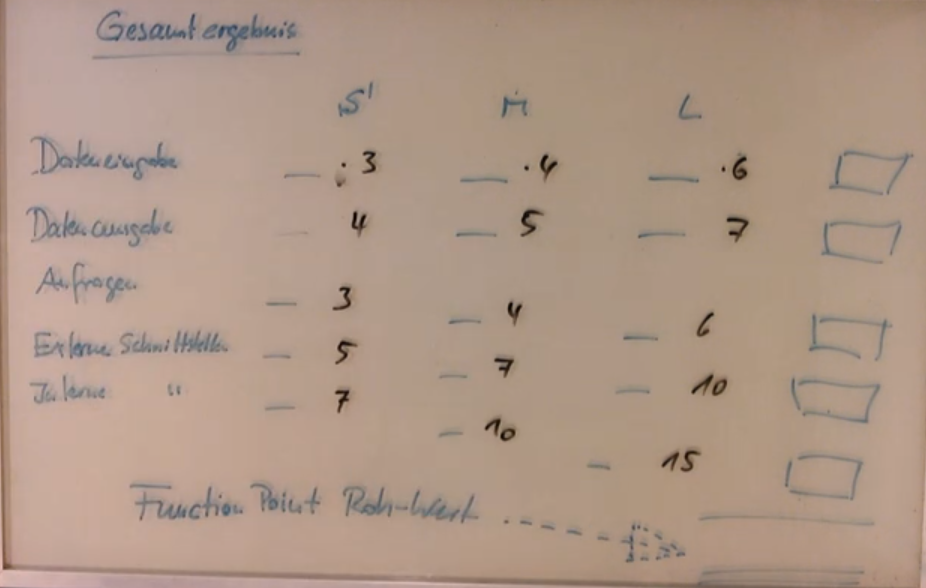 Gesamtergebnis
S M L
Dateneingabe _ · 3 _ · 4 _ · 6
Datenausgabe _ 4 _ 5 _ 7
Anfragen _ 3 _ 4 _ 6
Externe Schnittstellen _ 5 _ 7 _ 10
Interne " _ 7 _ 10 _ 15
Function Point Roh-Wert